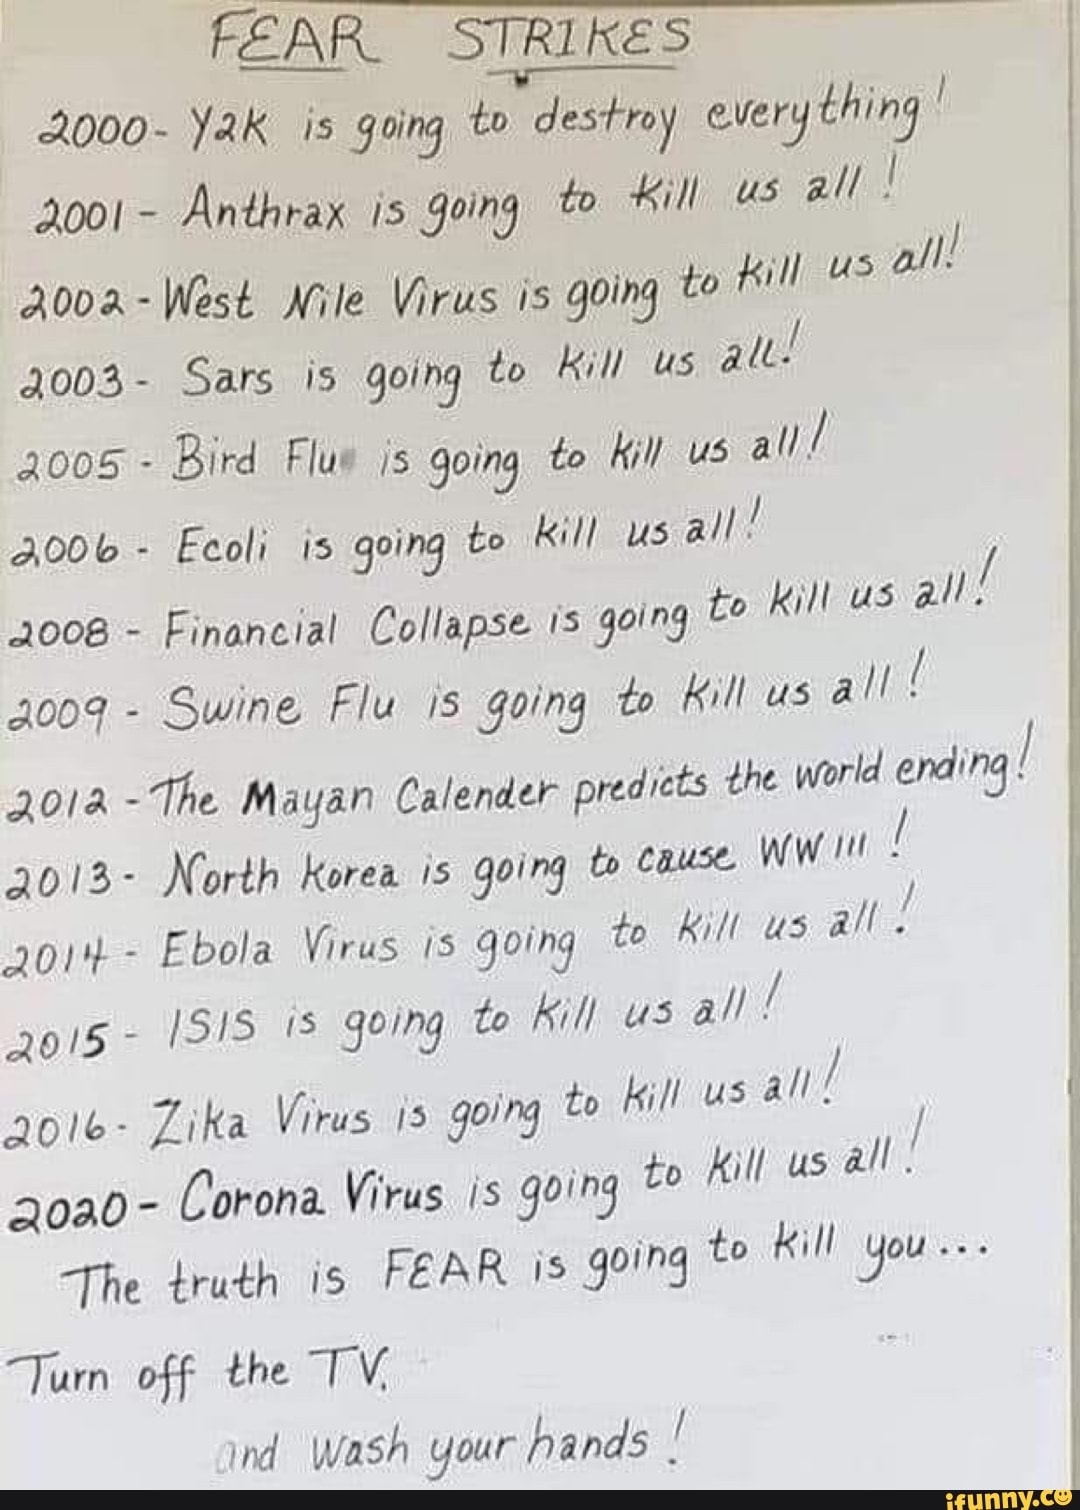 FEAR STRIKES
2000- Y2K is going to destroy everything!
2001 - Anthrax is going to kill us all!
2002 - West Nile Virus is going to kill us all!
2003 - Sars is going to kill us all!
2005 - Bird Flu is going to kill us all!
2006 - Ecoli is going to kill us all!
2008 - Financial Collapse is going to kill us all!
2009 - Swine Flu is going to kill us all!
2012 - The Mayan Calender predicts the world ending!
2013 - North Korea is going to cause WW III!
2014 - Ebola Virus is going to kill us all!
2015 - ISIS is going to kill us all!
2016 - Zika Virus is going to kill us all!
2020 - Corona Virus is going to kill us all!
The truth is FEAR is going to kill you...
Turn off the TV,
and wash your hands!
ifunny.co